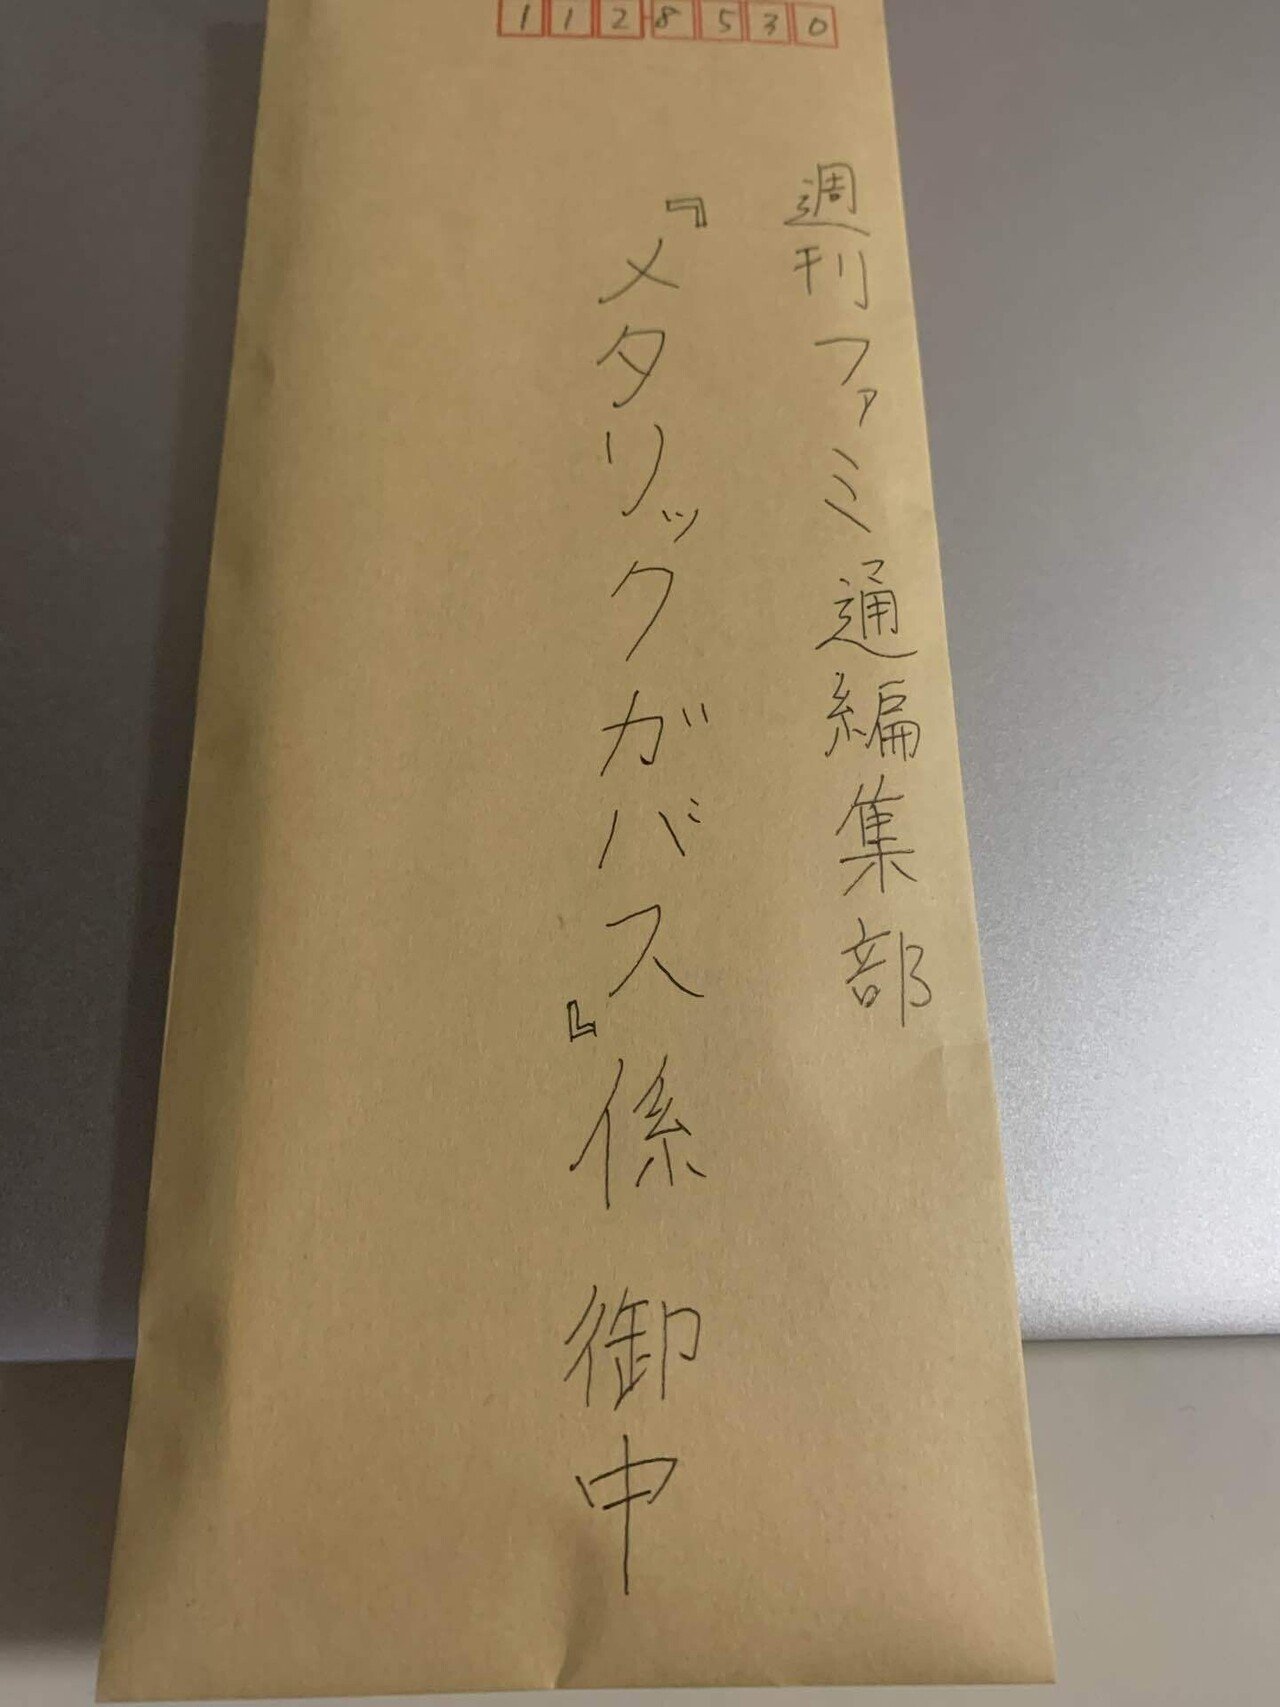 1128530
週刊ファミ通編集部
『メタリックガバス』係 御中